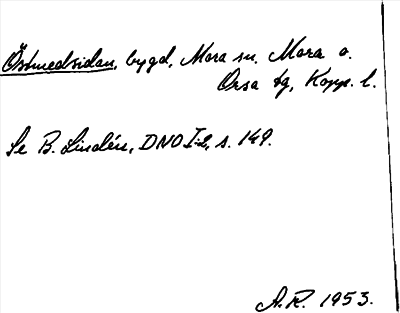 Östmedsidan, bygd, Mora sn, Mora o.
Orsa tg, Kopp. l.
Se B. Lindén, DNO I:2, s. 149.
A.R. 1953.